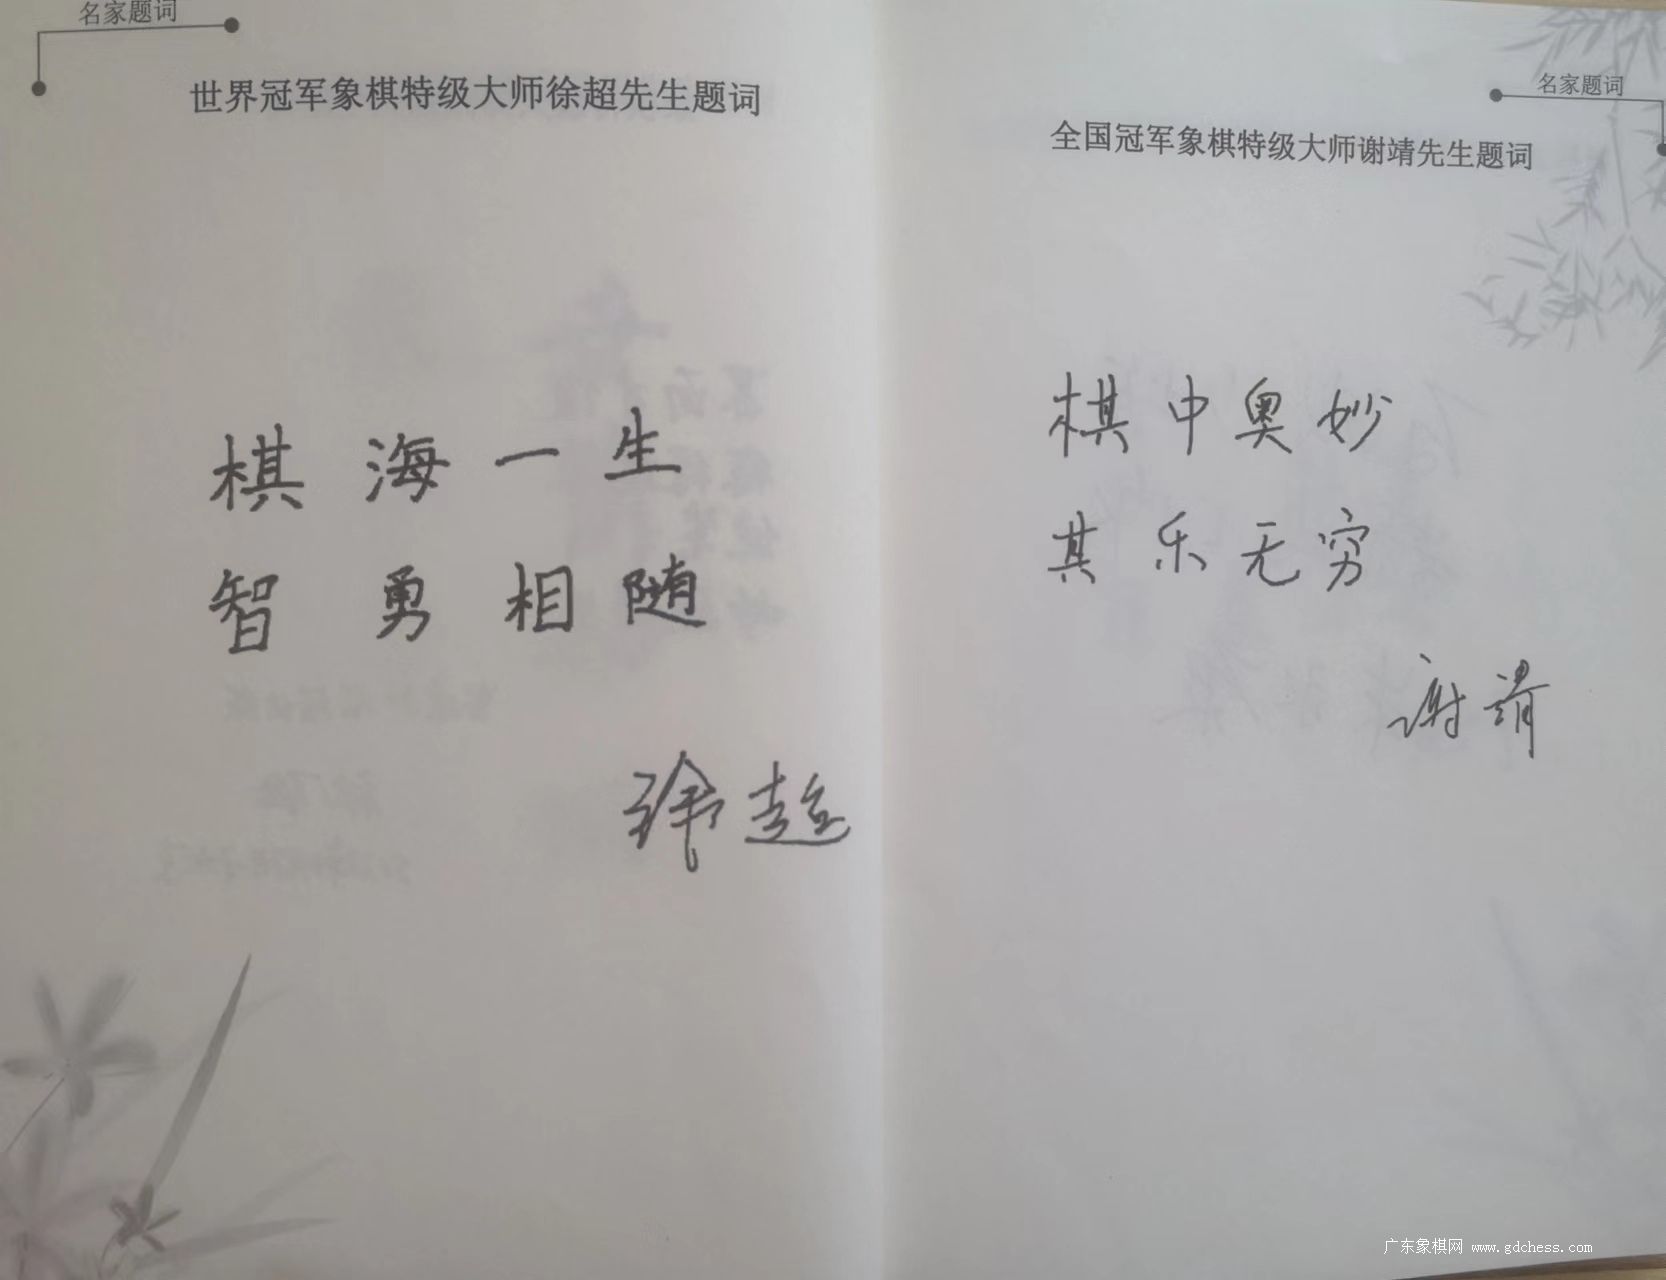 名家题词
世界冠军象棋特级大师徐超先生题词
棋海一生
智勇相随
徐超
名家题词
全国冠军象棋特级大师谢靖先生题词
棋中奥妙
其乐无穷
谢靖
广东象棋网 www.gdchess.com